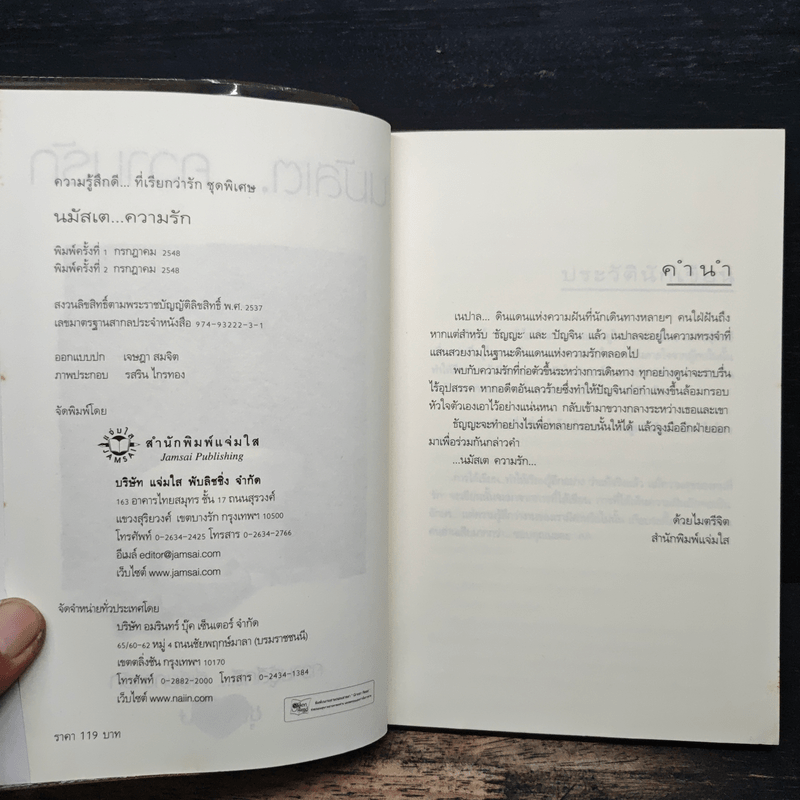 ความรู้สึกดี... ที่เรียกว่ารัก ชุดพิเศษ
นมัสเต...ความรัก
พิมพ์ครั้งที่ 1 กรกฎาคม 2548
พิมพ์ครั้งที่ 2 กรกฎาคม 2548
สงวนลิขสิทธิ์ตามพระราชบัญญัติลิขสิทธิ์ พ.ศ. 2537
เลขมาตรฐานสากลประจำหนังสือ 974-93222-3-1
ออกแบบปก เจษฎา สมจิต
ภาพประกอบ รสริน ไกรทอง
จัดพิมพ์โดย
แจ่มใส JAMSAI
สำนักพิมพ์แจ่มใส
Jamsai Publishing
บริษัท แจ่มใส พับลิชชิ่ง จำกัด
163 อาคารไทยสมุทร ชั้น 17 ถนนสุรวงศ์
แขวงสุริยวงศ์ เขตบางรัก กรุงเทพฯ 10500
โทรศัพท์ 0-2634-2425 โทรสาร 0-2634-2766
อีเมล์ editor@jamsai.com
เว็บไซต์ www.jamsai.com
จัดจำหน่ายทั่วประเทศโดย
บริษัท อมรินทร์ บุ๊ค เซ็นเตอร์ จำกัด
65/60-62 หมู่ 4 ถนนชัยพฤกษ์มาลา (บรมราชชนนี)
เขตตลิ่งชัน กรุงเทพฯ 10170
โทรศัพท์ 0-2882-2000 โทรสาร 0-2434-1384
เว็บไซต์ www.naiin.com
ราคา 119 บาท
คำนำ
เนปาล... ดินแดนแห่งความฝันที่นักเดินทางหลายๆ คนใฝ่ฝันถึง
หากแต่สำหรับ 'ธัญญะ' และ 'ปัญจิน' แล้ว เนปาลจะอยู่ในความทรงจำที่
แสนสวยงามในฐานะดินแดนแห่งความรักตลอดไป
พบกับความรักที่ก่อตัวขึ้นระหว่างการเดินทาง ทุกอย่างดูน่าจะราบรื่น
ไร้อุปสรรค หากอดีตอันเลวร้ายซึ่งทำให้ปัญจินก่อกำแพงขึ้นล้อมกรอบ
หัวใจตัวเองเอาไว้อย่างแน่นหนา กลับเข้ามาขวางกลางระหว่างเธอและเขา
ธัญญะจะทำอย่างไรเพื่อทลายกรอบนั้นให้ได้ แล้วจูงมืออีกฝ่ายออก
มาเพื่อร่วมกันกล่าวคำ
...นมัสเต ความรัก...
ด้วยไมตรีจิต
สำนักพิมพ์แจ่มใส